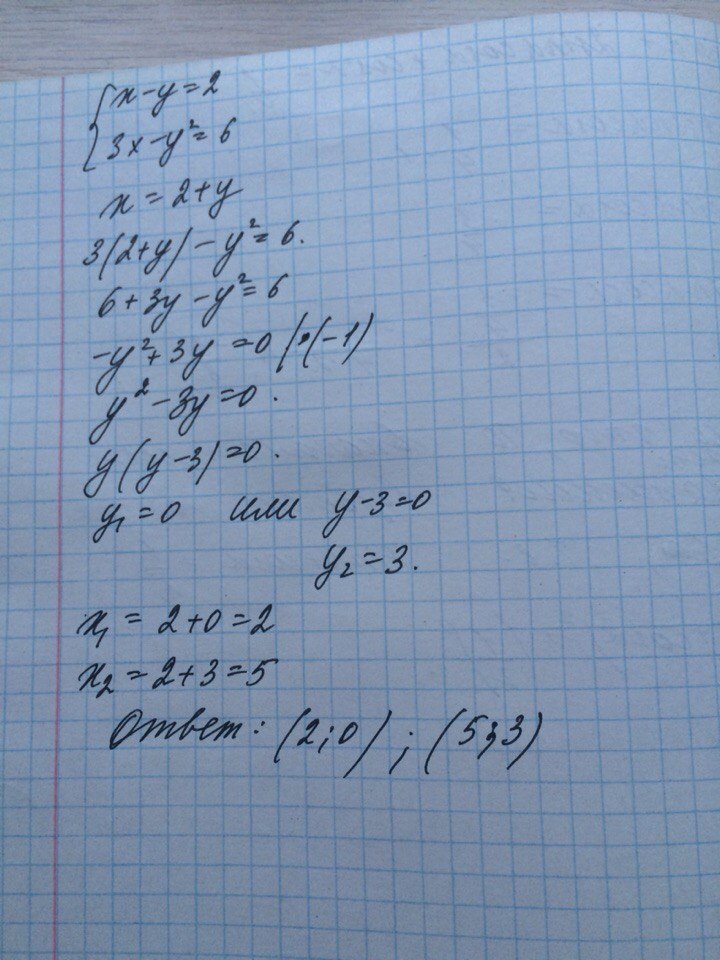 {x-y=2
3x-y²=6
x=2+y
3(2+y)-y²=6.
6+3y-y²=6
-y²+3y=0 |•(-1)
y²-3y=0.
y(y-3)=0.
y₁=0 или y-3=0
y₂=3.
x₁=2+0=2
x₂=2+3=5
Ответ: (2;0); (5;3)